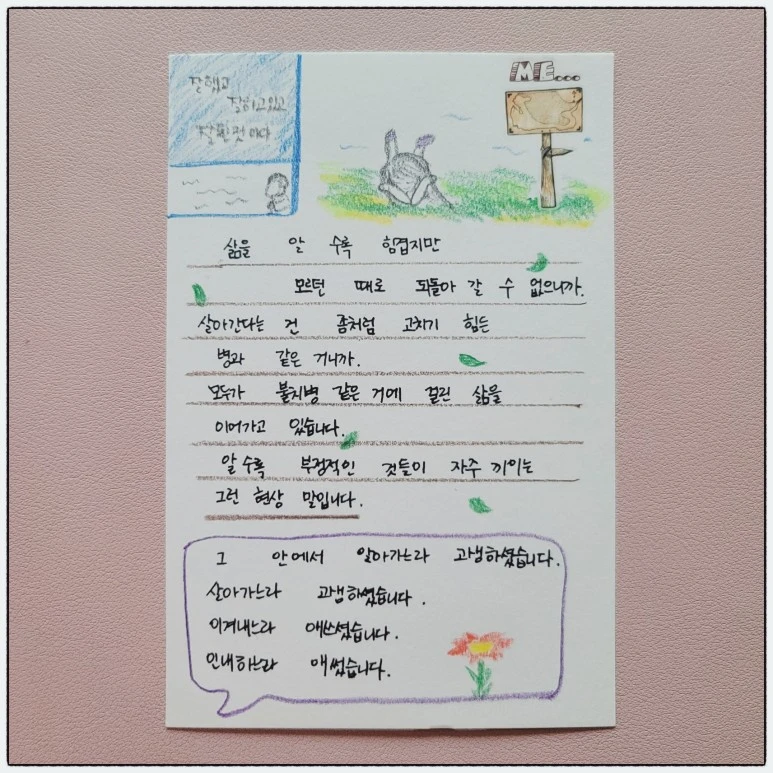 잘했고
잘하고있고
잘 될 것이다
ME...
삶을 알 수록 힘겹지만
모르던 때로 되돌아 갈 수 없으니까.
살아간다는 건 좀처럼 고치기 힘든
병과 같은 거니까.
모두가 불치병 같은 거에 걸린 삶을
이어가고 있습니다.
알 수록 부정적인 것들이 자주 끼이는
그런 현상 말입니다.
그 안에서 알아가느라 고생하셨습니다.
살아가느라 고생하셨습니다.
이겨내느라 애쓰셨습니다.
인내하느라 애썼습니다.